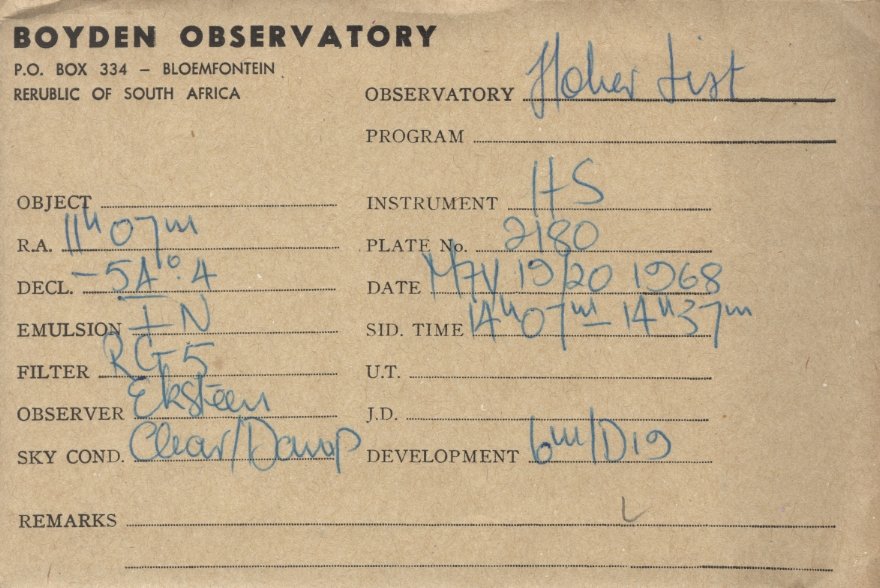 BOYDEN OBSERVATORY
P.O. BOX 334 – BLOEMFONTEIN
RERUBLIC OF SOUTH AFRICA
OBSERVATORY Hoher List
PROGRAM
OBJECT
R.A. 11h 07m
DECL. -54°.4
EMULSION I N
FILTER RG5
OBSERVER Eksteen
SKY COND. Clear/Damp
INSTRUMENT HS
PLATE No. 2180
DATE May 19/20 1968
SID. TIME 14h07m – 14h37m
U.T.
J.D.
DEVELOPMENT 6m/D19
REMARKS